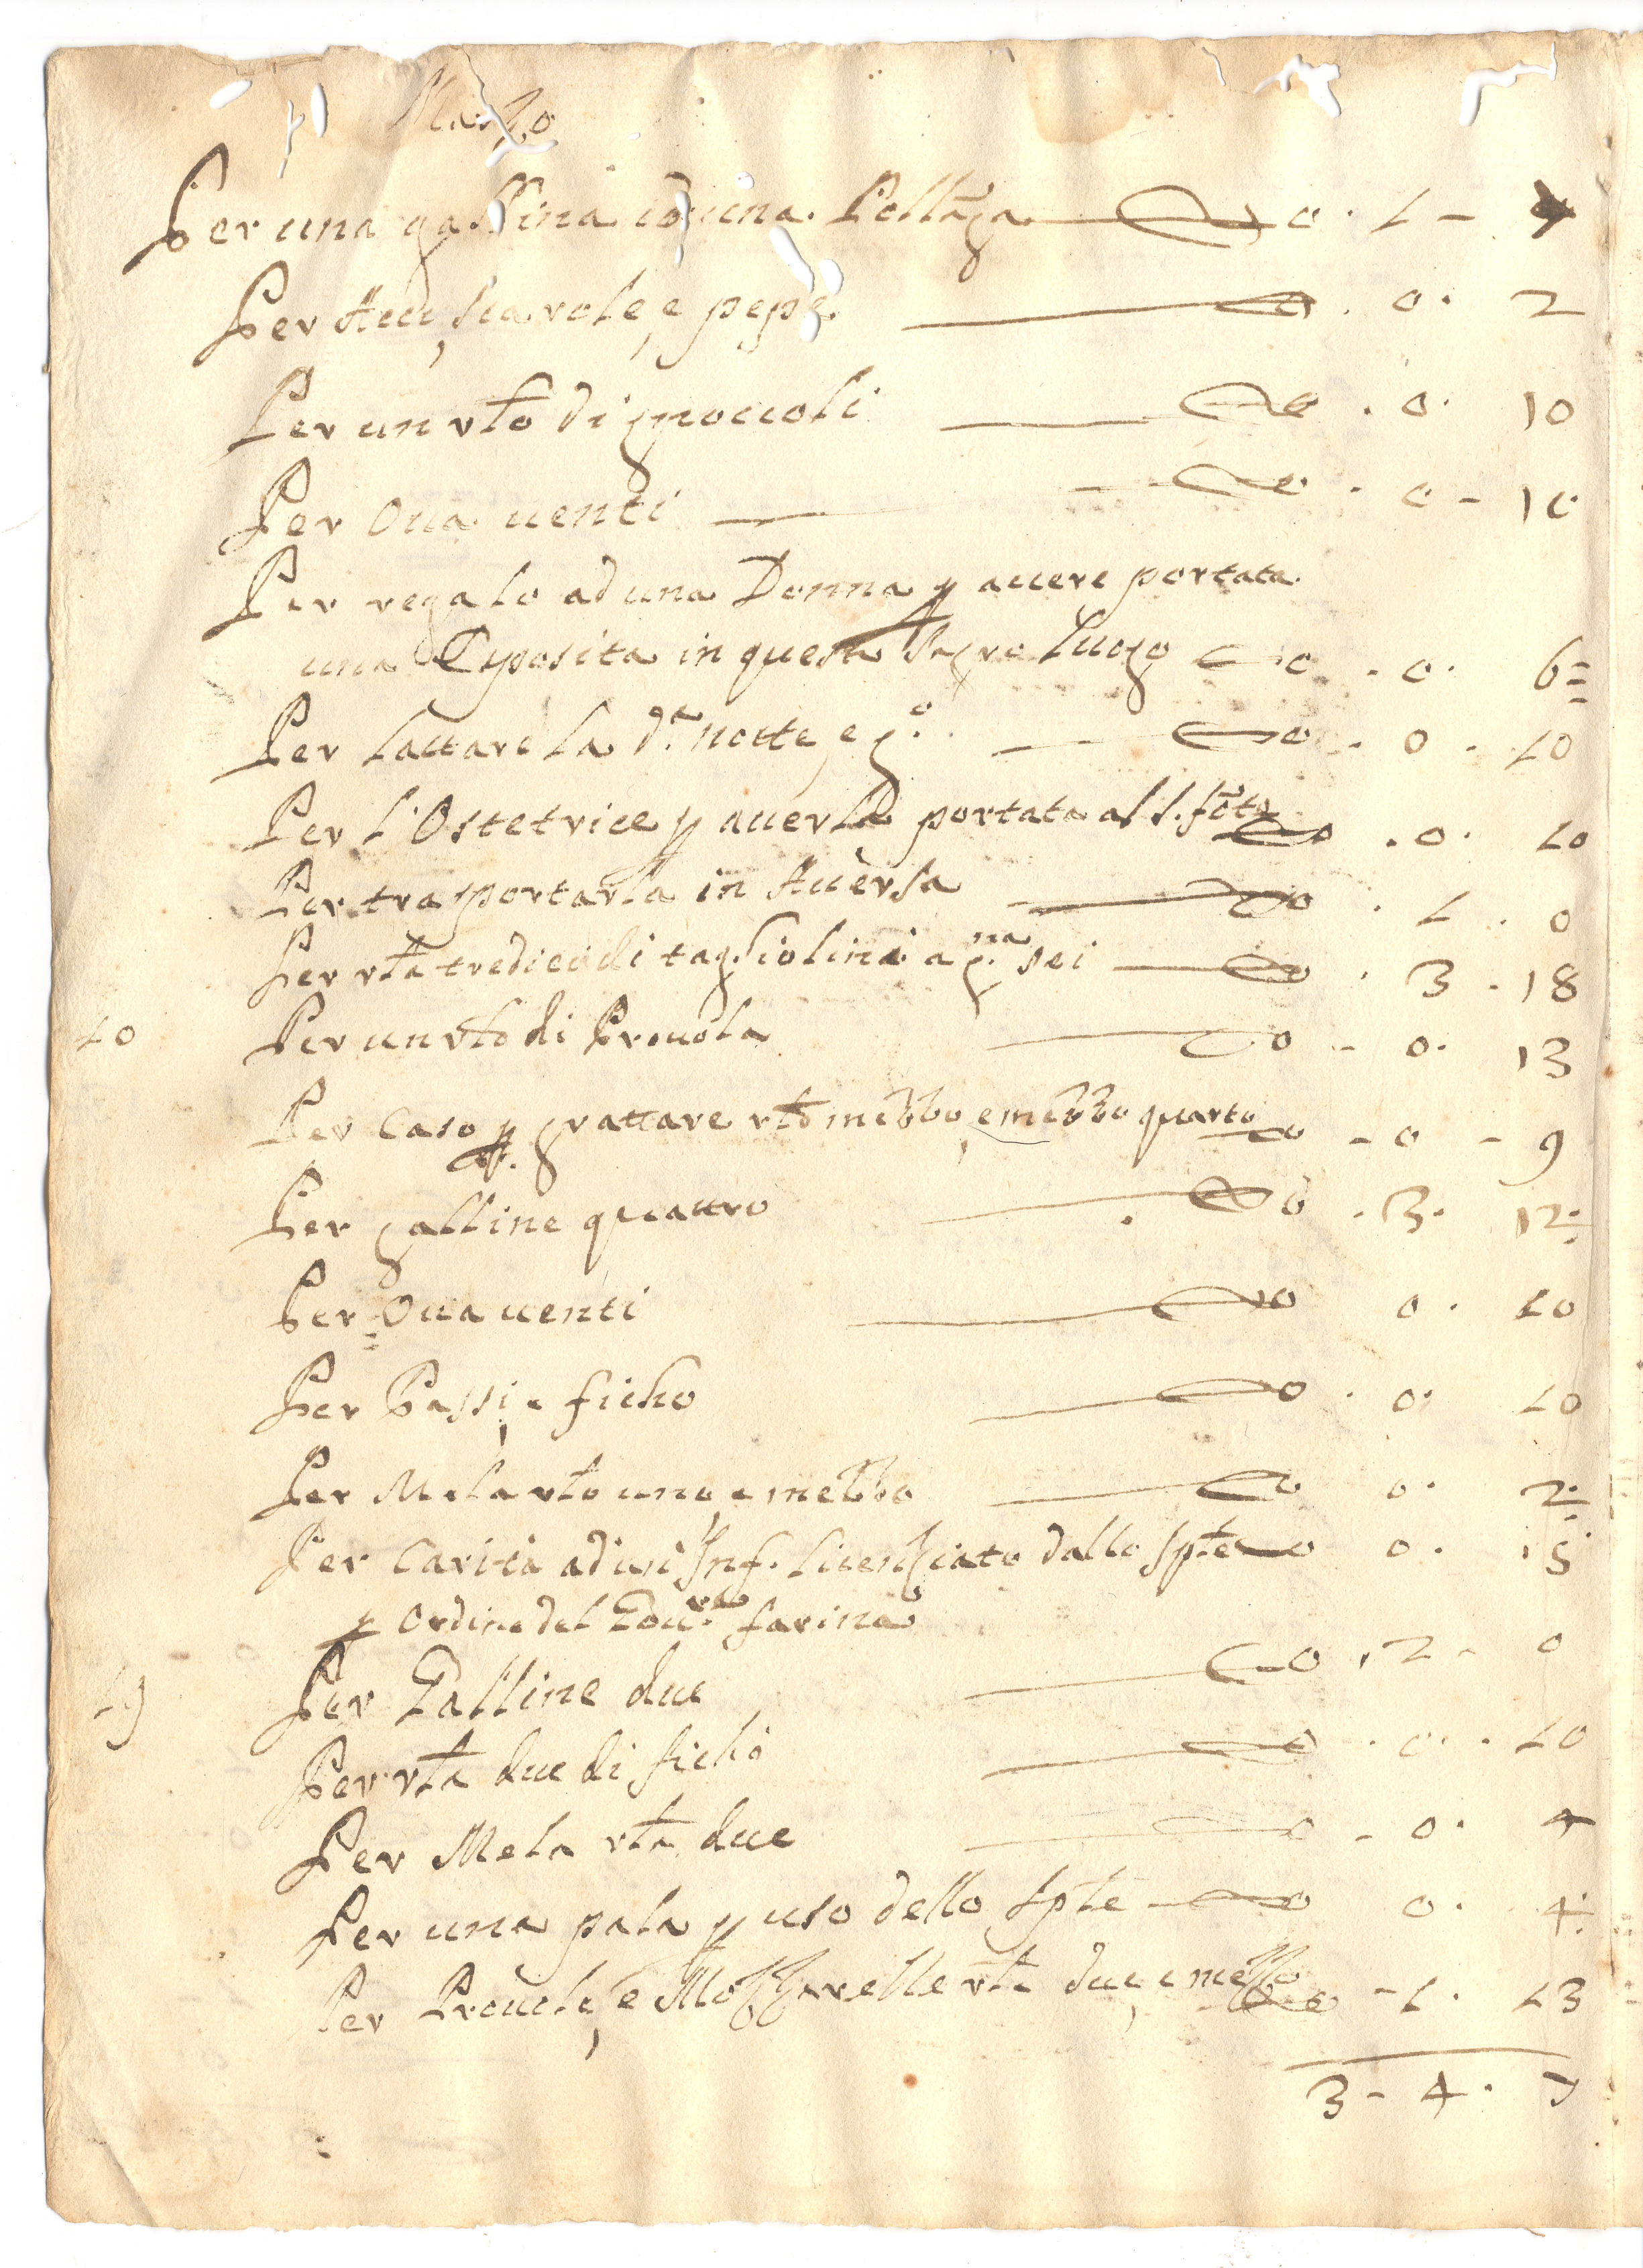 Marzo
Per una gallina ed una Pollanca — 0 . 1 —
Per Acci, scarole, e pepe — 0 . 0 . 2
Per un rlo di gnoccoli — 0 . 0 . 10
Per Oua uenti — 0 . 0 – 10
Per regalo ad una Donna p auere portata
una Esposita in questo Sagro Luogo — 0 . 0 . 6
Per lattare la da notte, e go — 0 . 0 . 10
Per l'Ostetrice p auerla portata al S. fote — 0 . 0 . 10
Per trasportarla in Auersa — 0 . 1 . 0
Per rla tredici di tagliolini a gna sei — 0 . 3 . 18
10 Per un rlo di Prouola — 0 – 0 . 13
Per Caso p grattare rlo mezzo, e mezzo quarto — 0 – 0 – 9
Per galline quattro — 0 . 3 . 12
Per Oua uenti — 0 0 . 10
Per Passi, e ficho — 0 . 0 . 10
Per Mela rlo uno, e mezzo — 0 0 . 2
Per Carità ad un Inf. licenziato dallo Spte — 0 0 . 15
p Ordine del Gou.re farina
19 Per Galline due — 0 . 2 – 0
Per rla due di fichi — 0 . 0 . 10
Per Mela rla due — 0 – 0 . 4
Per una pala p uso dello Spte — 0 0 . 4
Per Prouole, e Mozzarelle rla due, e mezzo — 0 – 1 . 13
3 – 4 . 7